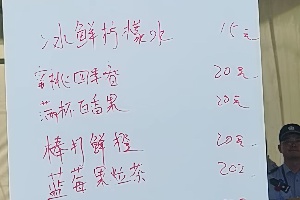 冰鲜柠檬水 15元
蜜桃四季春 20元
满杯百香果 20元
棒打鲜橙 20元
蓝莓果粒茶 20元